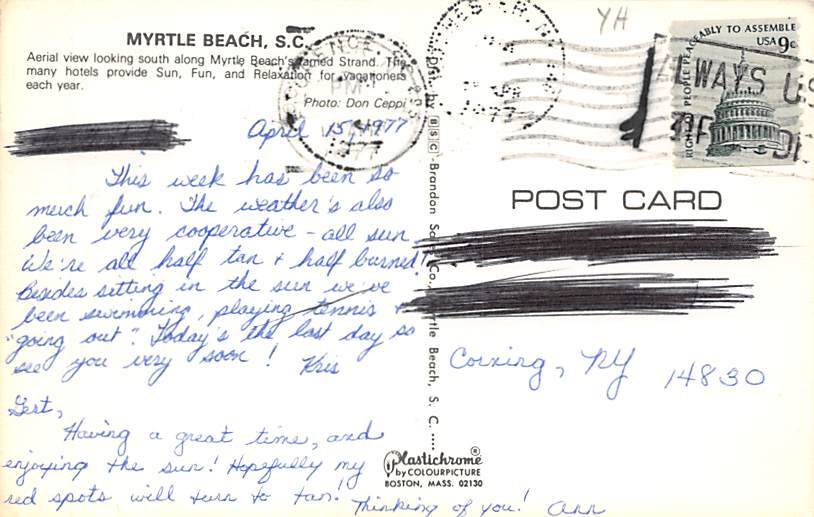 MYRTLE BEACH, S.C.
Aerial view looking south along Myrtle Beach's famed Strand. The
many hotels provide Sun, Fun, and Relaxation for vacationers
each year.
Photo: Don Ceppi
April 15, 1977
This week has been so
much fun. The weather's also
been very cooperative - all sun
We're all half tan & half burned!
Besides sitting in the sun we've
been swimming, playing tennis &
"going out". Today's the last day so
see you very soon! Kris
Gert,
Having a great time, and
enjoying the sun! Hopefully my
red spots will turn to tan!
Thinking of you! Ann
Dist. by BSC - Brandon Co., Myrtle Beach, S. C.
Plastichrome®
by COLOURPICTURE
BOSTON, MASS. 02130
YH
PM
1977
ALWAYS
RIGHT OF PEOPLE PEACEABLY TO ASSEMBLE
USA 9c
POST CARD
Corning, NY 14830